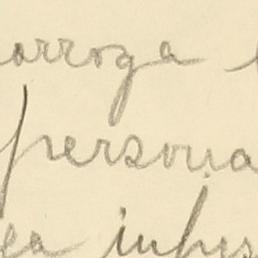 arroga
persona
ea inhes